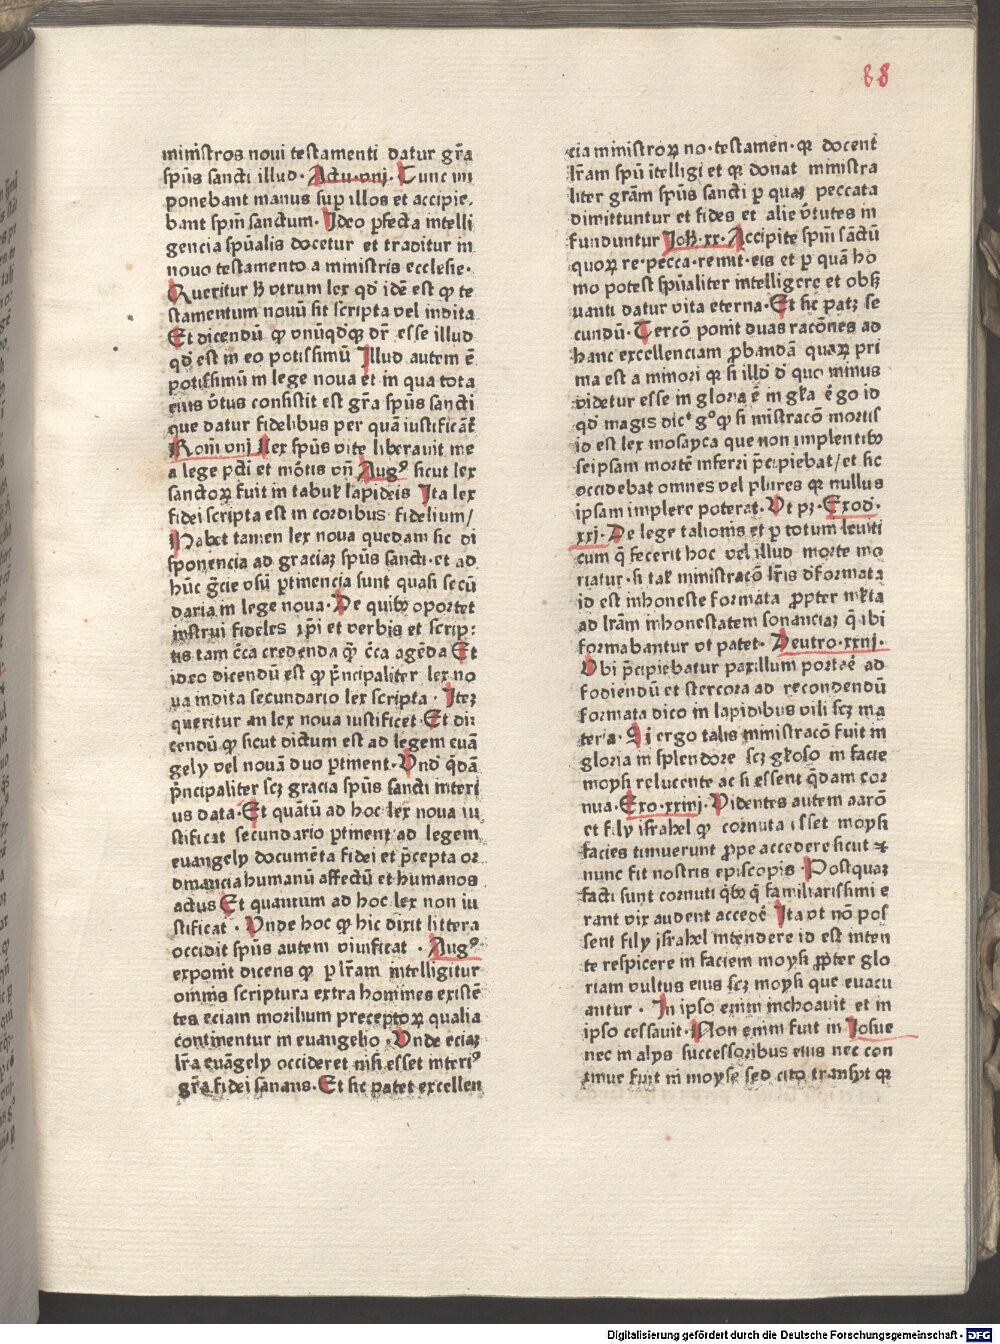 88
miniſtros noui teſtamenti datur gr̄a
ſpūs ſancti illud· Actu·vııj· Tunc im
ponebant manus ſup illos et accipie,
bant ſpm̄ ſanctum· Ideo ꝑfecta intelli
gencia ſpūalis docetur et traditur in
nouo teſtamento a miniſtris eccleſie·
Queritur h̄ vtrum lex qd̄ idē eſt ꝙ te
ſtamentum nouū ſit ſcripta vel indita
Et dicendū ꝙ vnūqd̄qꝫ dr̄ eſſe illud
qd̄ eſt in eo potiſſimū Illud autem ē
potiſſimū in lege noua et in qua tota
eius v̄tus conſiſtit eſt gr̄a ſpūs ſancti
que datur fidelibus per quā iuſtificāt
Rom̄ vııj Lex ſpūs vite liberauit me
a lege pc̄ti et mōtis vn̄ Augꝰ ſicut lex
ſanctoꝝ fuit in tabul̄ lapideis Ita lex
fidei ſcripta eſt in cordibus fidelium/
Habet tamen lex noua quedam ſic di
ſponencia ad graciaꝫ ſpūs ſancti·et ad
hūc gr̄cie vſū ꝑtinencia ſunt quaſi ſecū
daria in lege noua· De quibꝫ oportet
inſtrui fideles xp̄i et verbis et ſcrip:
tis tam c̄ca credenda ꝙ̄ c̄ca agēda Et
ideo dicendū eſt ꝙ p̄ncipaliter lex no
ua indita ſecundario lex ſcripta · Iteꝫ
queritur an lex noua iuſtificet· Et di
cendū ꝙ ſicut dictum eſt ad legem euā
gely vel nouā duo ꝑtinent· Vnū qd̄ā
p̄ncipaliter ſcꝫ gracia ſpūs ſancti interi
us data· Et quātū ad hoc lex noua iu
ſtificat ſecundario ꝑtinent ad legem
euangely documēta fidei et p̄cepta or
dinancia humanū affectū et humanos
actus Et quantum ad hoc lex non iu
ſtificat · Vnde hoc ꝙ hic dixit littera
occidit ſpūs autem viuificat · Augꝰ
exponit dicens ꝙ ꝑ lr̄am intelligitur
omnis ſcriptura extra homines exiſtē
tes eciam morilium preceptoꝝ qualia
continentur in euangelio · Vnde eciaꝫ
lr̄a euāgely occideret niſi eſſet interiꝰ
gr̄a fidei ſanans· Et ſic patet excellen
cia miniſtroꝝ no·teſtamen·qꝛ docent
lr̄am ſpū ītelligi et qꝛ donat miniſtra
liter gr̄am ſpūs ſancti ꝑ quaꝫ peccata
dimittuntur et fides et alie v̄tutes in
funduntur Joh̄·xx· Accipite ſpm̄ ſāctū
quoꝝ re·pecca·remit·eis et ꝑ quā ho
mo poteſt ſpūaliter intelligere et obſꝫ
uanti datur vita eterna· Et ſic patꝫ ſe
cundū· Tercō ponit duas racōnes ad
hanc excellenciam ꝓbandā quaꝝ pri
ma eſt a minori qꝛ ſi illd̄ d̄ quo minus
videtur eſſe in gloria ē in gl̄ia ēgo id
qd̄ magis dicᵗ gͦ ꝙ ſi miſtracō mortis
id eſt lex moſayca que non implentibꝫ
ſeipſam mortē inferri p̄cipiebat/et ſic
occidebat omnes vel plures qꝛ nullus
ipſam implere poterat· Vt pꝫ· Exod·
xxj· De lege talionis et ꝑ totum leuiti
cum q̄ fecerit hoc vel illud morte mo
riatur·ſi tal̄ miniſtracō lr̄is d̄formata
id eſt inhoneſte formata ꝓpter ml̄ta
ad lr̄am inhoneſtatem ſonanciaꝫ q̄ ibi
formabantur vt patet· Deutro·xxıj·
Vbi p̄cipiebatur paxillum portaē ad
fodiendū et ſtercora ad recondendū
formata dico in lapidibus vili ſcꝫ ma
teria· Si ergo talis miniſtracō fuit in
gloria in ſplendore ſcꝫ gl̄oſo in facie
moyſi relucente ac ſi eſſent q̄dam cor
nua· Exo·xxiııj· Videntes autem aarō
et fily iſrahel ꝙ cornuta eſſet moyſi
facies timuerunt ꝓpe accedere ſicut et
nunc fit noſtris epiſcopis · Poſtquaꝫ
facti ſunt cornuti qb̄ꝫ q̄ familiariſſimi e
rant vix audent accedē Ita vt nō poſ
ſent fily iſrahel intendere id eſt inten
te reſpicere in faciem moyſi ꝓpter glo
riam vultus eius ſcꝫ moyſi que euacu
antur · In ipſo enim inchoauit et in
ipſo ceſſauit· Non enim fuit in Ioſue
nec in alys ſucceſſoribus eius nec con
tinue fuit in moyſe ſed cito tranſyt qꝛ
Digitalisierung gefördert durch die Deutsche Forschungsgemeinschaft · DFG